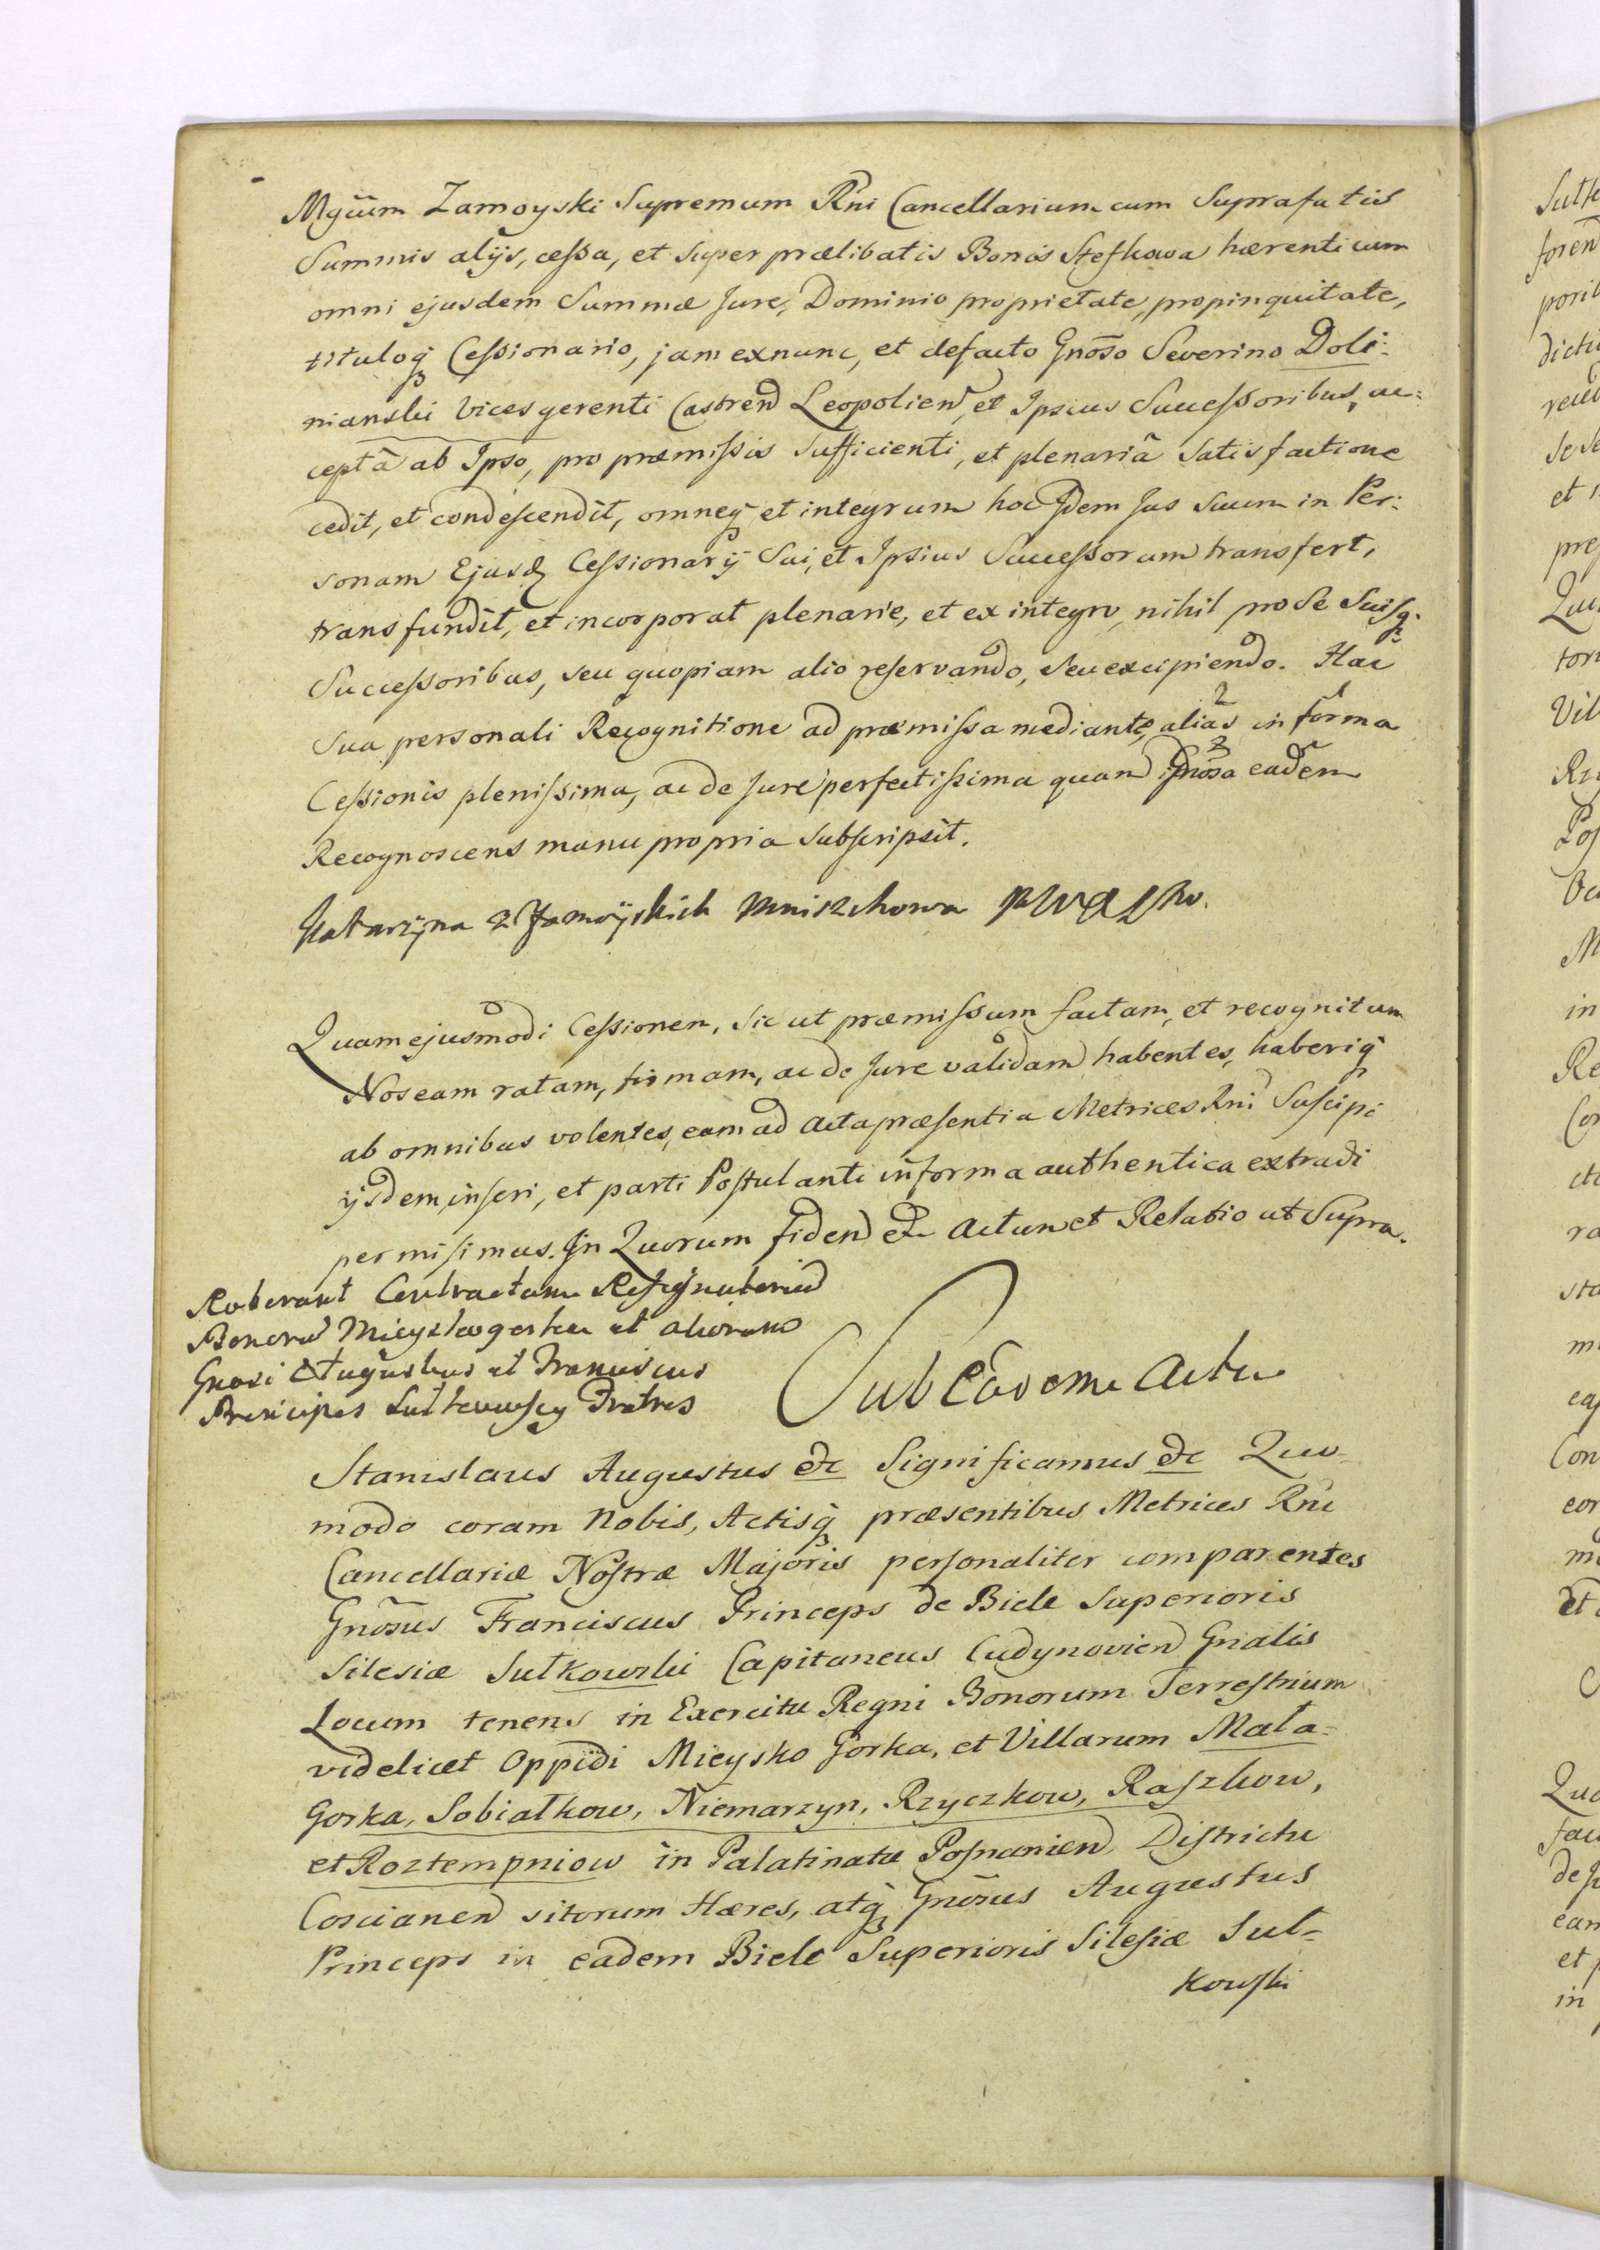 Mgcum Zamoyski Supremum Rni Cancellarium cum Suprafatis
Summis alijs, cessa, et super prælibatis Bonis Stefkowa hærenti cum
omni ejusdem Summæ Jure, Dominio proprietate, propinquitate,
tituloq Cessionario, jam exnunc, et defacto Gnoso Severino Doli:
nianski Vicesgerenti Castren Leopolien, et Ipsius Successoribus, ac:
ceptâ ab Ipso, pro præmissis Sufficienti, et plenariâ Satisfactione
cedit, et condescendit, omneq et integrum hoc Idem Jus Suum in Per:
sonam Ejusd Cessionarij Sui, et Ipsius Successorum transfert,
transfundit, et incorporat plenarie, et ex integro, nihil pro Se Suisq
Successoribus, seu quopiam alio reservando, seu excipiendo. Hac
Sua personali Recognitione ad præmissa mediante, alias in forma
Cessionis plenissima, ac de Jure perfectissima quam Gnosa eadem
Recognoscens manu propria Subscripsit.
Katarzyna z Zamoyskich Mniszchowa
Quam ejusmodi Cessionem, sic ut præmissum factam, et recognitam
Nos eam ratam, firmam, ac de Jure validam habentes, haberiq
ab omnibus volentes, eam ad Acta præsentia Metrices Rni Suscipi
ijsdem inseri, et parti Postulanti in forma authentica extradi
permisimus. In Quorum fidem etc Actum et Relatio ut Supra.
Roborant Contractum Resignatorium
Bonorum Mieyskagorka et aliorum
Gnosi Augustus et Franciscus
Principes Sułkowscy Fratres
Sub Eodem Actu
Stanislaus Augustus etc Significamus etc Quo-
modo coram Nobis, Actisq præsentibus Metrices Rni
Cancellariæ Nostræ Majoris personaliter comparentes
Gnosus Franciscus Princeps de Biele Superioris
Silesiæ Sułkowski Capitaneus Cudynovien Gnalis
Locum tenens in Exercitu Regni Bonorum Terrestrium
videlicet Oppidi Mieysko Gorka, et Villarum Mała-
Gorka, Sobiałkow, Niemarzyn, Rzyczkow, Raszkow,
et Roztempniow in Palatinatu Posnanien Districtu
Coscianen sitorum Hæres, atq Gnosus Augustus
Princeps in eadem Biele Superioris Silesiæ Suł-
kowski